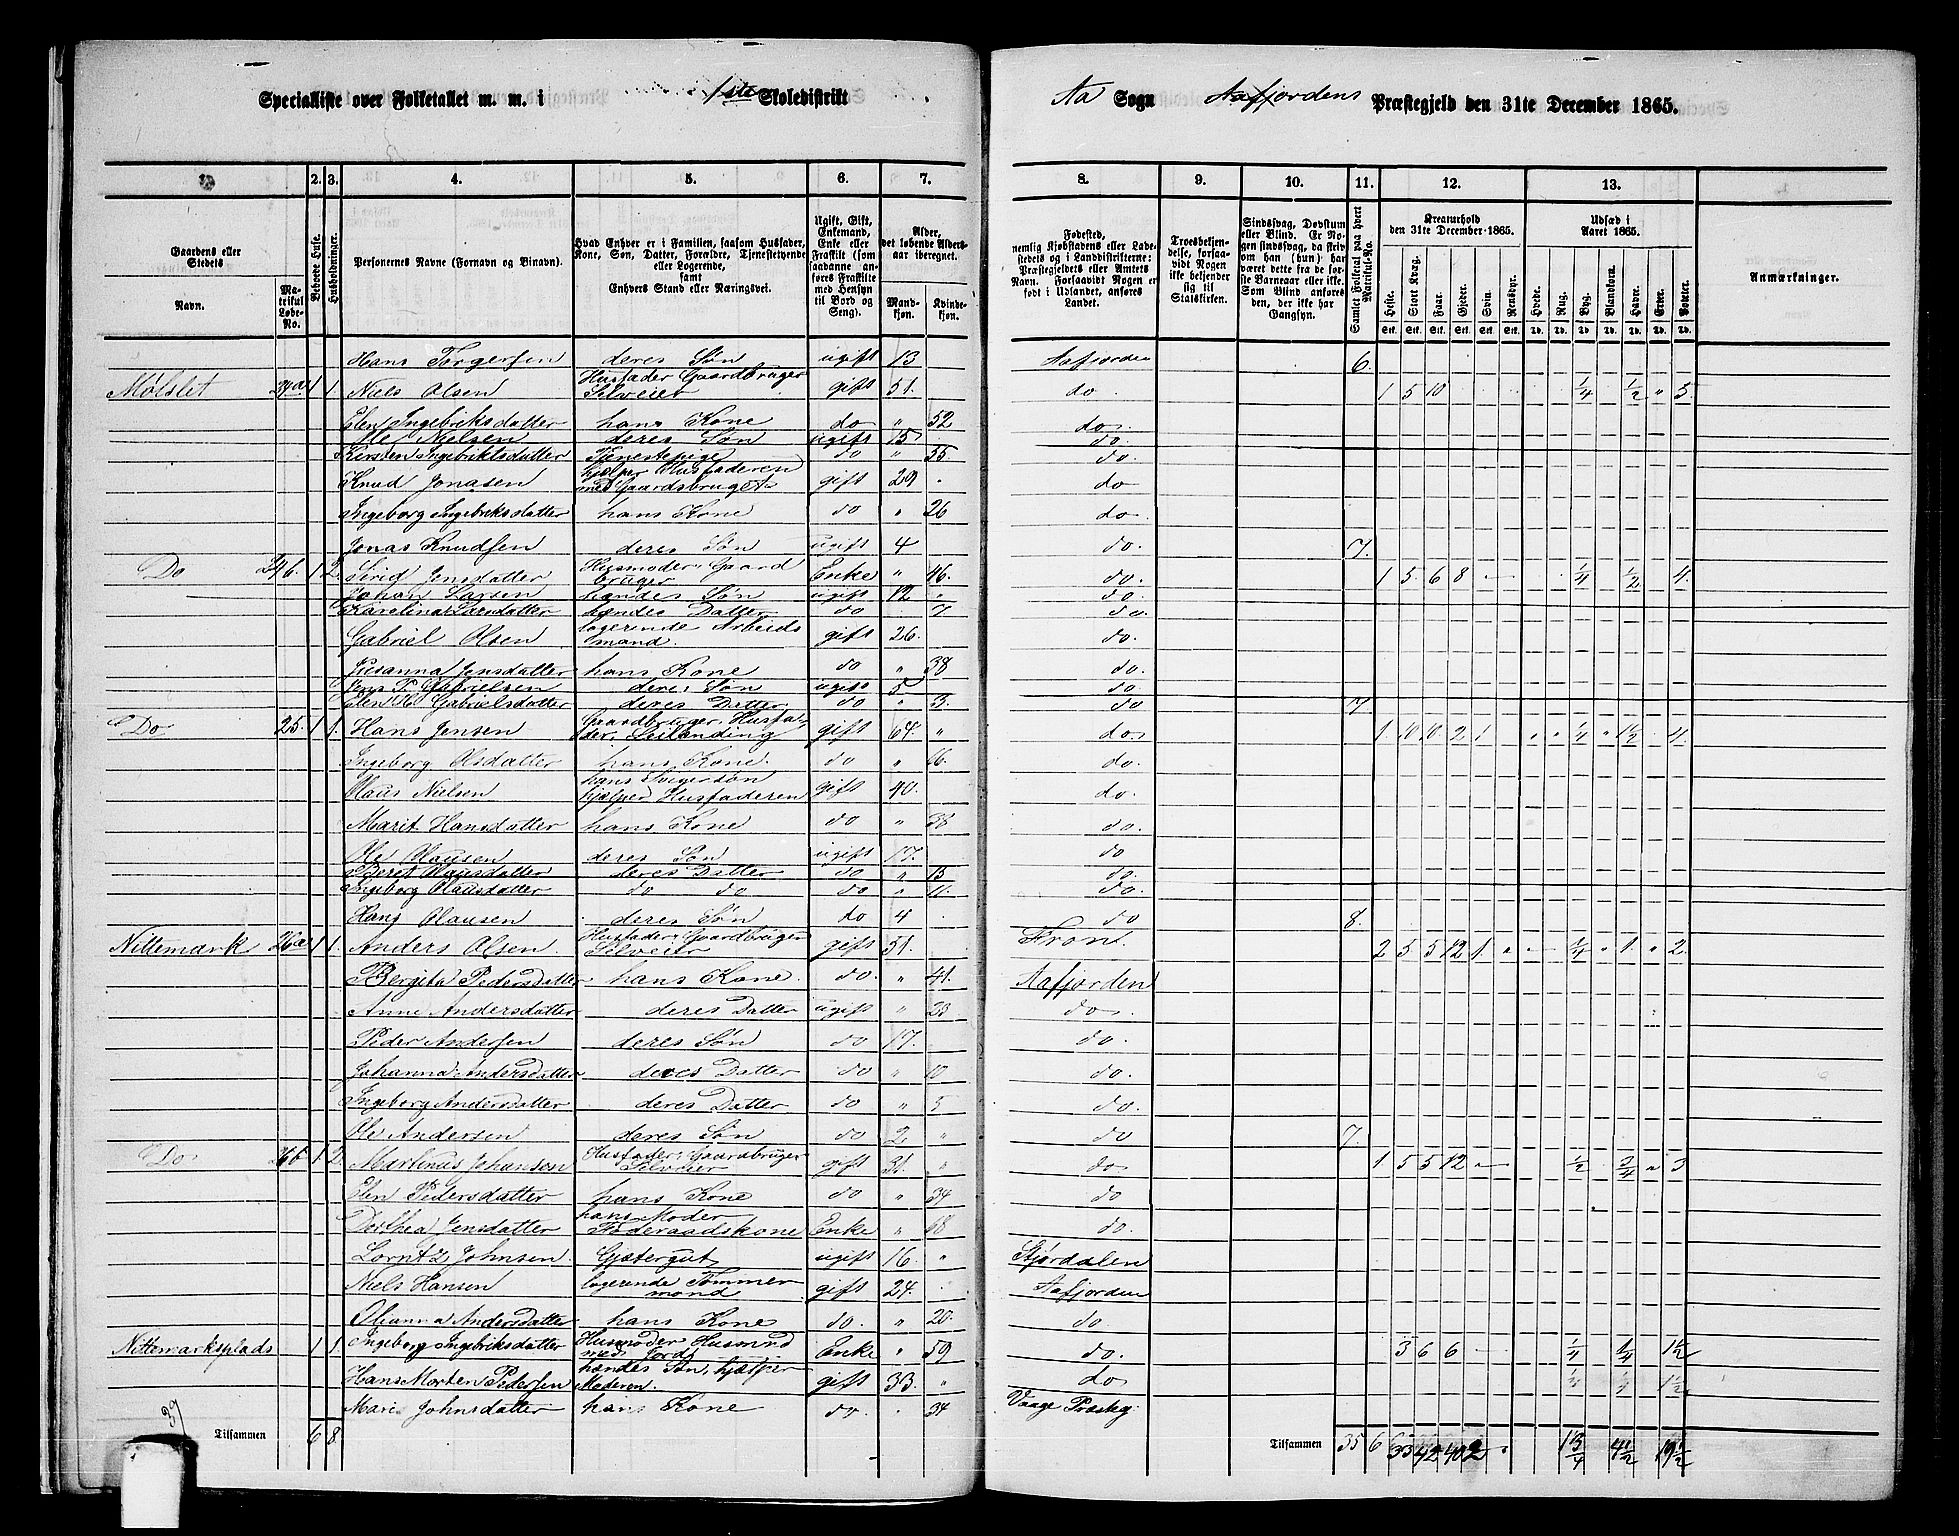 Specialliste over Folketallet m. m. i 1ste Skoledistrikt Aa Sogn Aafjordens Præstegjeld den 31te December 1865.
1. 2. 3. 4. 5. 6. 7. 8. 9. 10. 11. 12. 13.
Gaardens eller Stedets
Navn.
Matrikul Løbe-No.
Beboede Huse.
Husholdninger.
Personernes Navne (Fornavn og Binavn).
Hvad Enhver er i Familien, saasom Husfader, Kone, Søn, Datter, Forældre, Tjenestetyende eller Logerende, samt Enhvers Stand eller Næringsvei.
Ugift, Gift, Enkemand, Enke eller Fraskilt (som saadanne anføres Fraskilte med Hensyn til Bord og Seng).
Alder, det løbende Alders- aar iberegnet.
Mand- kjøn. Kvinde- kjøn.
Fødested, nemlig Kjøbstadens eller Ladestedets og i Landdistrikterne: Præstegjeldets eller Amtets Navn. Forsaavidt Nogen er født i Udlandet, anføres Landet.
Troesbekjendelse, forsaavidt Nogen ikke bekjender sig til Statskirken.
Sindssvag, Døvstum eller Blind. Er Nogen sindssvag, da skriv om han (hun) har været dette fra de første Barneaar eller ikke. Som Blind anføres den, der ikke har Gangsyn.
Samlet Folketal paa hvert Matrikul-No.
Kreaturhold den 31te December 1865.
Heste. Stort Kvæg. Faar. Gjeder. Svin. Rensdyr.
Udsæd i Aaret 1865.
Hvede. Rug. Byg. Blandkorn. Havre. Erter. Poteter.
Anmærkninger.
Hans Torgersen deres Søn ugift 13 Aafjorden 6.
Mølslet 24a 1 1. Niels Olsen Husfader Gaardbruger Selveier gift 51. do 1 5 10 1/4 1/2 " 5.
Elen Ingebriksdatter hans Kone do " 52 do
Ole Nielsen deres Søn ugift 15 do.
Kirsten Ingebriktsdatter Tjenestepige do " 35 do.
Knud Jonasen hjelper Husfaderen med Gaardsbruget gift 29 do
Ingeborg Ingebriksdatter hans Kone do " 26 do
Jonas Knudsen deres Søn ugift 4 do. 7.
Do 24b. 1 2. Sirid Jensdatter Husmoder Gaardbruger Enke " 46. do. 1 5. 6 8 1/4 1/2 4.
Johan Larsen hendes Søn ugift 12 " do.
Karolina Larsdatter hendes Datter do " 7. do.
Gabriel Olsen logerende Arbeidsmand. gift 26. do.
Susanna Jensdatter hans Kone do " 38 do.
Jens P. Gabrielsen deres Søn ugift 5 do
Elen Gabrielsdatter deres Datter do " 3. do 7
Do 25. 1 1. Hans Jensen Gaardbruger. Husfader, Leilænding gift 64. " do. 1. 10 10. 2 1. 1/4 " 1 1/2 4.
Ingeborg Olsdatter hans Kone. do " 66. do.
Klaus Nielsen hans Svigersøn hjælper Husfaderen gift 40. do.
Marit Hansdatter hans Kone do " 38 do.
Ole Klausen deres Søn ugift 17. do
Beret Klausdatter deres Datter do " 15 do.
Ingeborg Klausdatter do do do " 11. do.
Hans Clausen deres Søn do 4 do 8.
Nittemark 26a 1 1. Anders Olsen Husfader Gaardbruger Selveier gift 51. Fron. 2 5 5 12 1. 1/4 " 1. " 2.
Bergita Pedersdatter hans Kone. do. " 41. Aafjorden
Anne Andersdatter deres Datter ugift " 23 do.
Peder Andersen deres Søn do 17. do.
Johanna Andersdatter deres Datter do " 10 do.
Ingeborg Andersdatter deres Datter do " 5 do.
Ole Andersen deres Søn do 2. " do 7.
Do 26b 1 2. Martinus Johansen Husfader Gaardbruger Selveier gift 31. " do 1 5 5 12 1/2 3/4 " 3
Elen Pedersdatter hans Kone do " 34 do
Dorthea Jensdatter hans Moder Føderaadskone Enke " 68 do.
Lorntz Johnsen Gjætergut ugift 16 " Stjørdalen
Niels Hansen logerende Tømmermand gift 24. Aafjorden
Olianna Andersdatter hans Kone do. " 20. do
Nittemarksplads 1 1. Ingeborg Ingebriksdatter Husmoder Husmand med Jord Enke " 59 do. 3 6 6 1/4 1/4 1 1/2
Hans Morten Pedersen hendes Søn, hjælper Moderen. gift 33. " do
Marie Johnsdatter hans Kone do. " 34 Vaage Præstegj.
39
Tilsammen 6 8.
Tilsammen 35 6 33 42 40 2 1 3/4 4 1/2 19 1/2